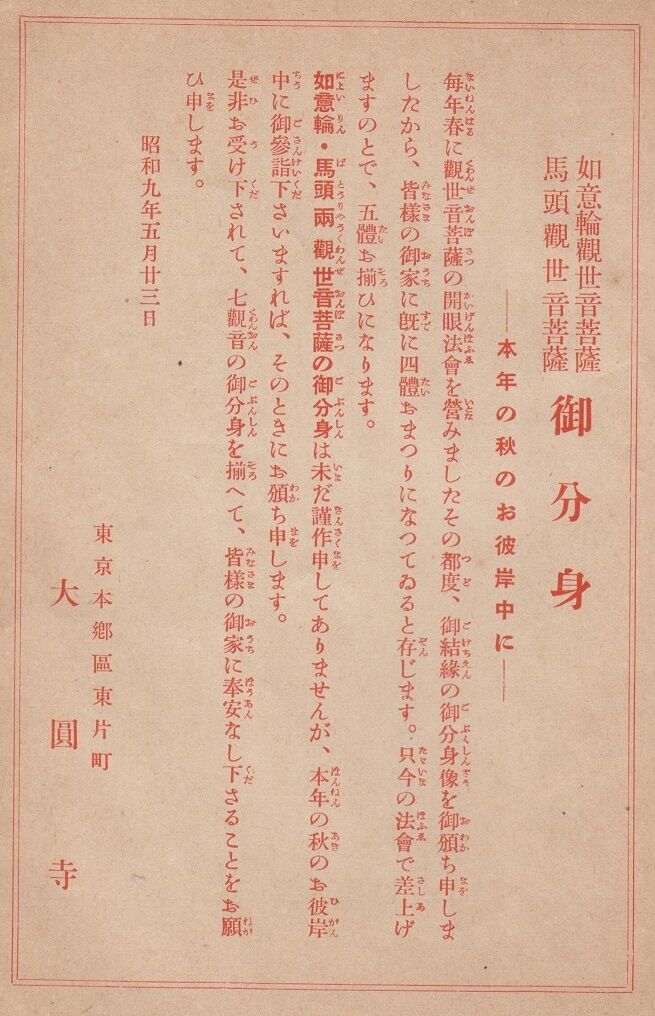 如意輪觀世音菩薩
馬頭觀世音菩薩
御分身
―本年の秋のお彼岸中に―
每年春に觀世音菩薩の開眼法會を營みましたその都度、御結緣の御分身像を御頒ち申しま
したから、皆樣の御家に旣に四體おまつりになつてゐると存じます。只今の法會で差上げ
ますのとで、五體お揃ひになります。
如意輪・馬頭兩觀世音菩薩の御分身は未だ謹作申してありませんが、本年の秋のお彼岸
中に御參詣下さいますれば、そのときにお頒ち申します。
是非お受け下されて、七觀音の御分身を揃へて、皆樣の御家に奉安なし下さることをお願
ひ申します。
昭和九年五月廿三日
東京本鄕區東片町
大圓寺